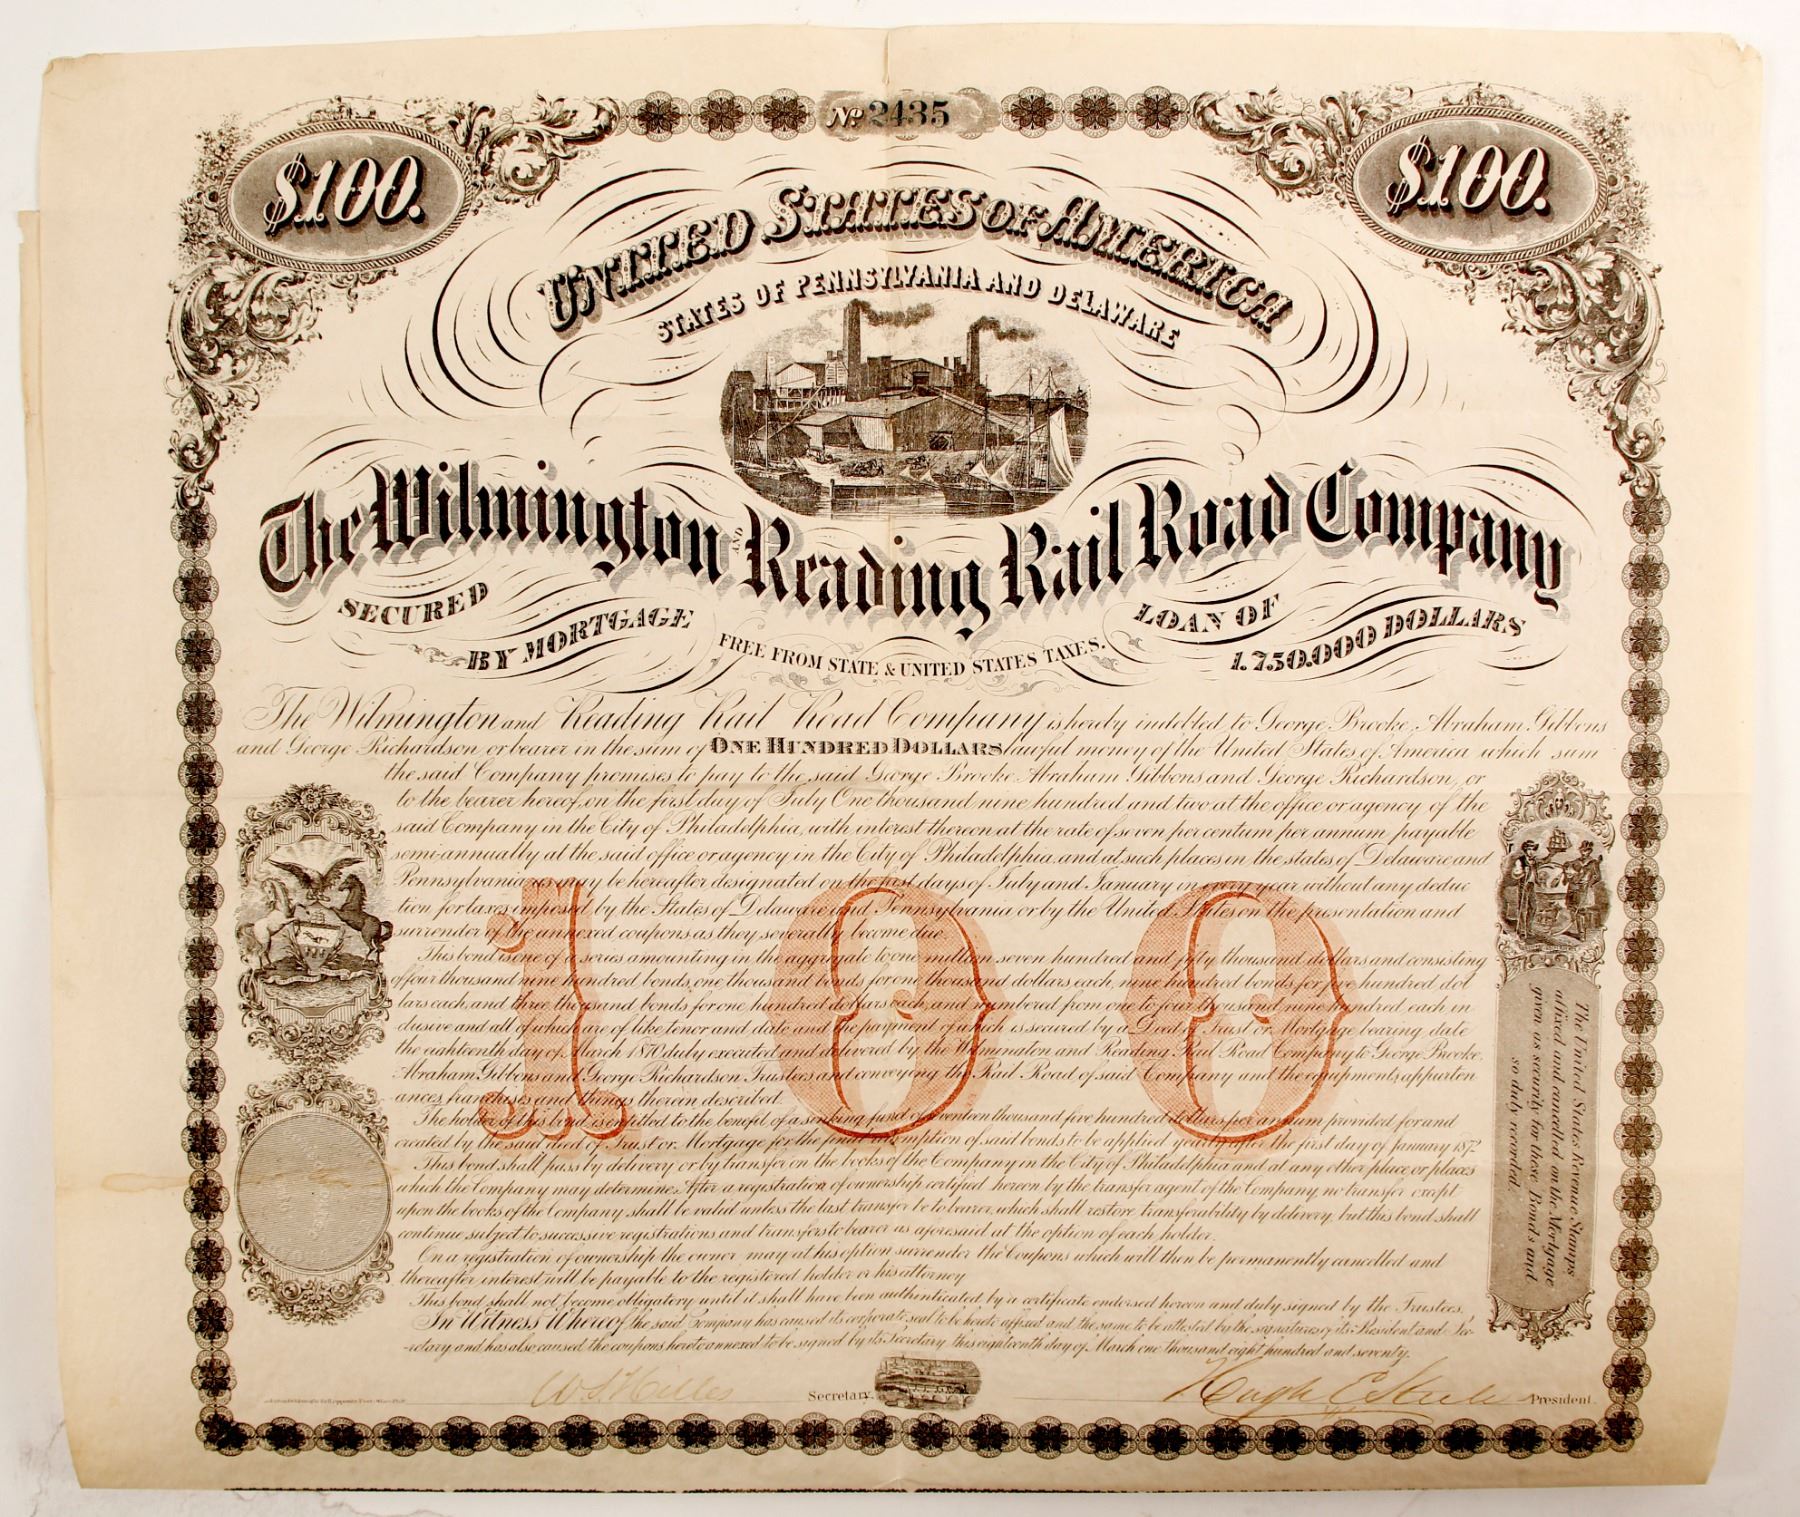 No 2435
$100.
$100.
UNITED STATES OF AMERICA
STATES OF PENNSYLVANIA AND DELAWARE
The Wilmington AND Reading Rail Road Company
SECURED
BY MORTGAGE
FREE FROM STATE & UNITED STATES TAXES.
LOAN OF
1.750.000 DOLLARS
The Wilmington and Reading Rail Road Company is hereby indebted to George Brooke, Abraham Gibbons
and George Richardson or bearer in the sum of ONE HUNDRED DOLLARS lawful money of the United States of America which sum
the said Company promises to pay to the said George Brooke Abraham Gibbons and George Richardson, or
to the bearer hereof, on the first day of July One thousand nine hundred and two at the office or agency of the
said Company in the City of Philadelphia, with interest thereon at the rate of seven per centum per annum payable
semi-annually at the said office or agency in the City of Philadelphia and at such places in the states of Delaware and
Pennsylvania as may be hereafter designated on the first days of July and January in every year without any deduc
tion for taxes imposed by the States of Delaware and Pennsylvania or by the United States on the presentation and
surrender of the annexed coupons as they severally become due.
This bond is one of a series amounting in the aggregate to one million seven hundred and fifty thousand dollars and consisting
of four thousand nine hundred bonds, one thousand bonds for one thousand dollars each, nine hundred bonds for five hundred dol
lars each, and three thousand bonds for one hundred dollars each, and numbered from one to four thousand nine hundred each in
clusive and all of which are of like tenor and date and the payment of which is secured by a Deed of Trust or Mortgage bearing date
the eighteenth day of March 1870 duly executed and delivered by the Wilmington and Reading Rail Road Company to George Brooke,
Abraham Gibbons and George Richardson, Trustees and conveying the Rail Road of said Company and the equipments, appurten
ances, franchises and things therein described.
The holder of this bond is entitled to the benefit of a sinking fund of seventeen thousand five hundred dollars per annum provided for and
created by the said deed of Trust or Mortgage for the prior redemption of said bonds to be applied yearly after the first day of January 1872
This bond shall pass by delivery or by transfer on the books of the Company in the City of Philadelphia and at any other place or places
which the Company may determine. After a registration of ownership certified hereon by the transfer agent of the Company, no transfer except
upon the books of the Company shall be valid unless the last transfer be to bearer, which shall restore transferability by delivery, but this bond shall
continue subject to successive registrations and transfers to bearer as aforesaid at the option of each holder.
On a registration of ownership the owner may at his option surrender the Coupons which will then be permanently cancelled and
thereafter interest will be payable to the registered holder or his attorney
This bond shall not become obligatory until it shall have been authenticated by a certificate endorsed hereon and duly signed by the Trustees.
In Witness Whereof the said Company has caused its corporate seal to be hereto affixed and the same to be attested by the signatures of its President and Sec-
retary and has also caused the coupons hereto annexed to be signed by its Secretary this eighteenth day of March one thousand eight hundred and seventy.
100
The United States Revenue Stamps
affixed and cancelled on the Mortgage
given as security for these Bonds and
so duly recorded.
W S Hilles Secretary.
Hugh E Steele President.